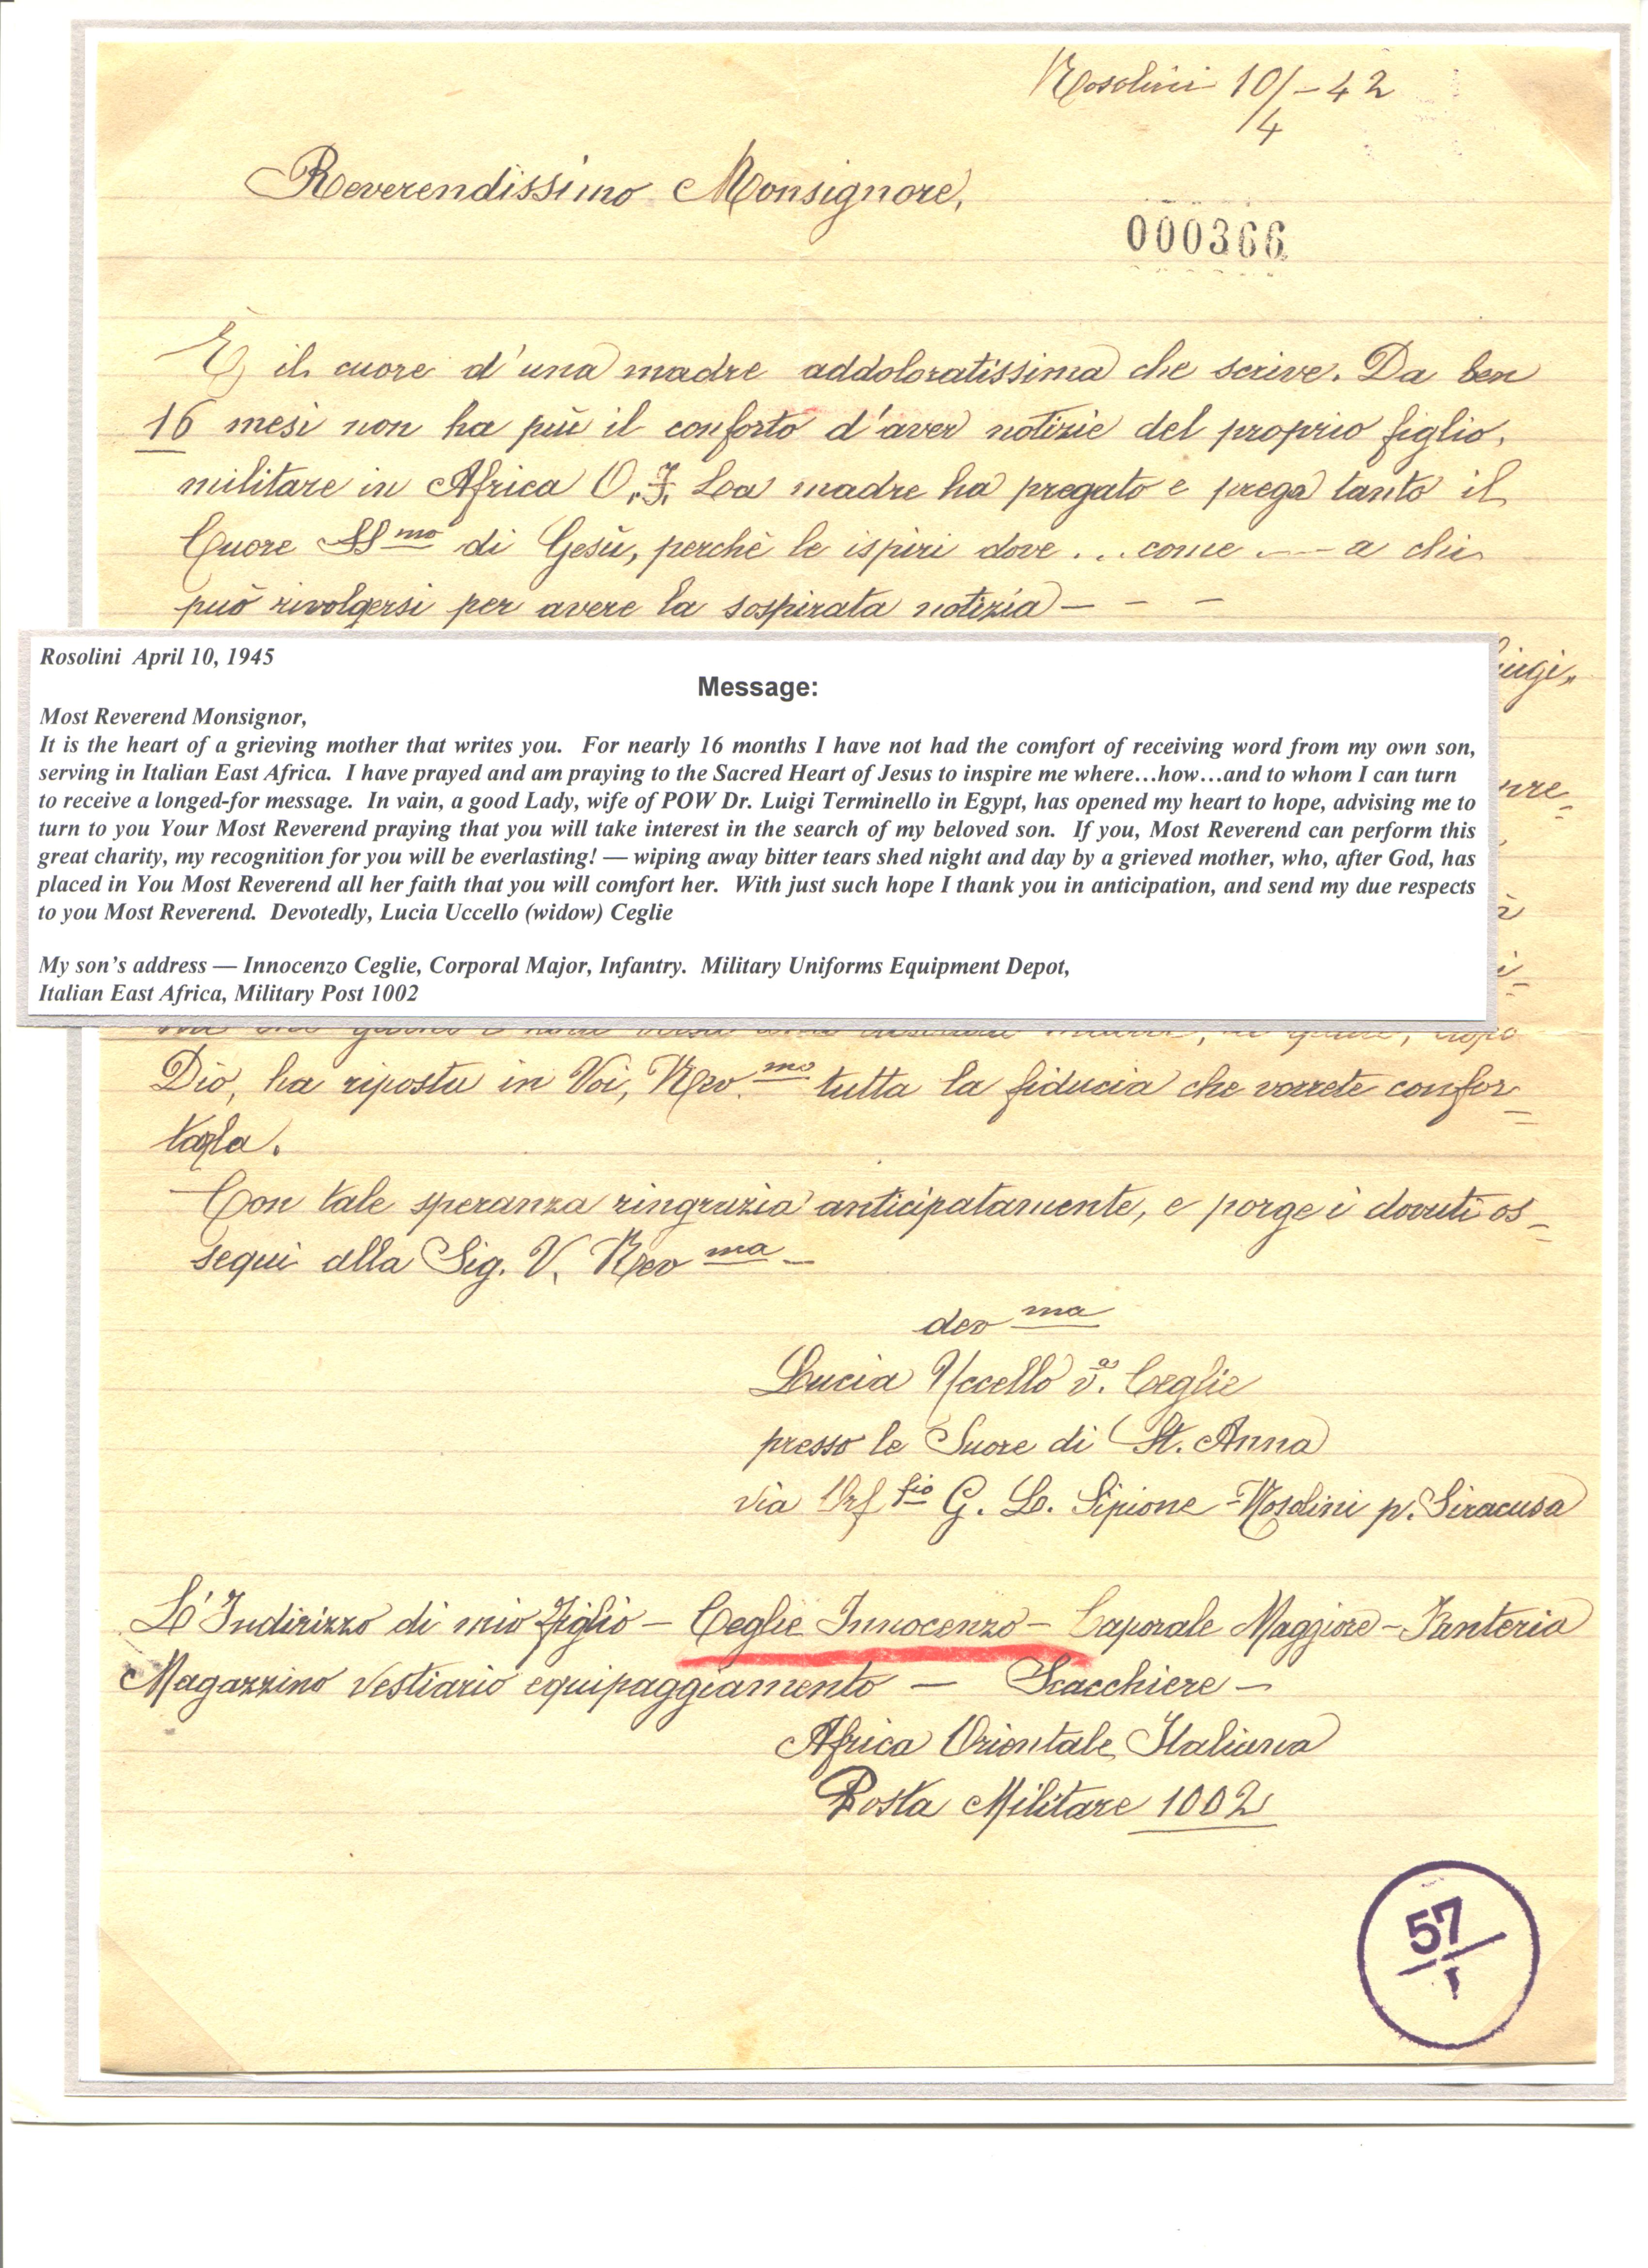 Rosolini 10/4 – 42
Reverendissimo Monsignore,
000366
È il cuore d'una madre addoloratissima che scrive. Da ben
16 mesi non ha più il conforto d'aver notizie del proprio figlio,
militare in Africa O. I. La madre ha pregato e prega tanto il
Cuore SSmo di Gesù, perchè le ispiri dove . . . come . — — a chi
può rivolgersi per avere la sospirata notizia — – –
Rosolini April 10, 1945
Message:
Most Reverend Monsignor,
It is the heart of a grieving mother that writes you. For nearly 16 months I have not had the comfort of receiving word from my own son,
serving in Italian East Africa. I have prayed and am praying to the Sacred Heart of Jesus to inspire me where…how…and to whom I can turn
to receive a longed-for message. In vain, a good Lady, wife of POW Dr. Luigi Terminello in Egypt, has opened my heart to hope, advising me to
turn to you Your Most Reverend praying that you will take interest in the search of my beloved son. If you, Most Reverend can perform this
great charity, my recognition for you will be everlasting! — wiping away bitter tears shed night and day by a grieved mother, who, after God, has
placed in You Most Reverend all her faith that you will comfort her. With just such hope I thank you in anticipation, and send my due respects
to you Most Reverend. Devotedly, Lucia Uccello (widow) Ceglie
My son's address — Innocenzo Ceglie, Corporal Major, Infantry. Military Uniforms Equipment Depot,
Italian East Africa, Military Post 1002
Dio, ha riposta in Voi, Rev.mo tutta la fiducia che vorrete confor=
tarla.
Con tale speranza ringrazia anticipatamente, e porge i dovuti os=
sequi alla Sig. V. Rev ma —
dev ma
Lucia Uccello v.a Ceglie
presso le Suore di St. Anna
via Orf fio G. L. Sipione - Rosolini p. Siracusa
L'Indirizzo di mio figlio – Ceglie Innocenzo – Caporale Maggiore – Fanteria
Magazzino vestiario equipaggiamento — Scacchiere –
Africa Orientale Italiana
Posta Militare 1002
57/1